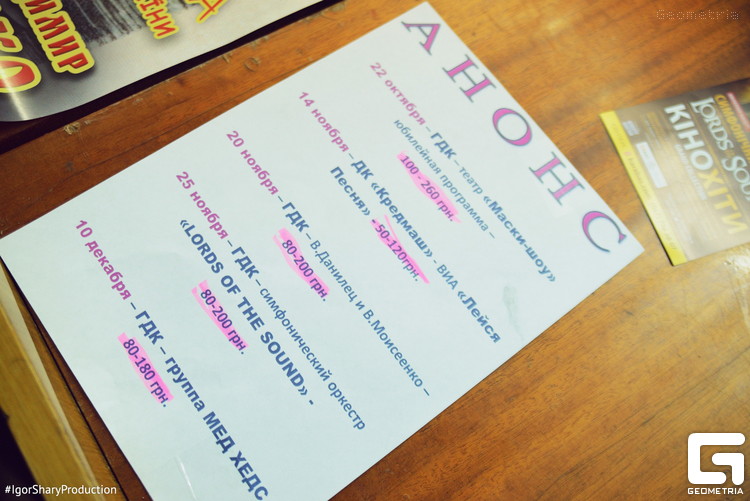 Geometria
ИМИР
ЇНИ
АНОНС
22 октября – ГДК – театр «Маски-шоу»
юбилейная программа –
100 - 260 грн.
14 ноября – ДК «Кредмаш» - ВИА «Лейся
Песня» - 50-120грн.
20 ноября – ГДК – В.Данилец и В.Моисеенко –
80-200 грн.
25 ноября – ГДК – симфонический оркестр
«LORDS OF THE SOUND» -
80-200 грн.
10 декабря – ГДК – группа МЕД ХЕДС
80-180 грн.
LORDS
КІНОХІТИ
#IgorSharyProduction
GEOMETRIA